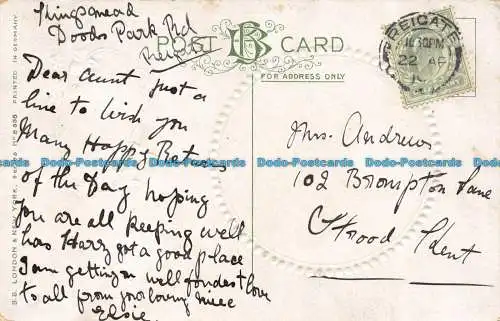 Kingsmead
Doods Park Rd
Reigate
POST CARD
B
FOR ADDRESS ONLY
REIGATE
10.30PM
22 AP
Dear Aunt just a
line to wish you
Many Happy Returns
of the Day hoping
you are all keeping well
has Harry got a good place
I am getting on well fondest love
to all from your loving niece
Elsie
Mrs. Andrews
102 Brompton Lane
Strood Kent
B.B. LONDON & NEW YORK.
PRINTED IN GERMANY
Dodo-Postcards Dodo-Postcards Dodo-Postcards Dodo-Postcards